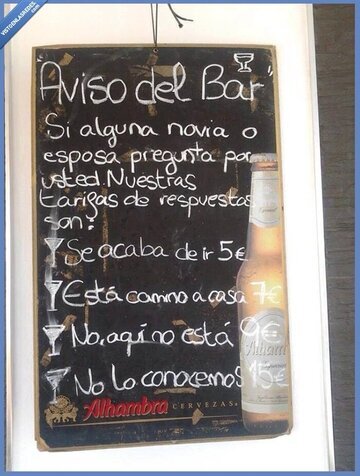 VISTOENLASREDES.com
"Aviso del Bar"
Si alguna novia o
esposa pregunta por
usted. Nuestras
tarifas de respuestas
son:
Se acaba de ir 5€
Está camino a casa 7€
No, aquí no está 9€
No lo conocemos 15€
Alhambra CERVEZAS
Alhambra